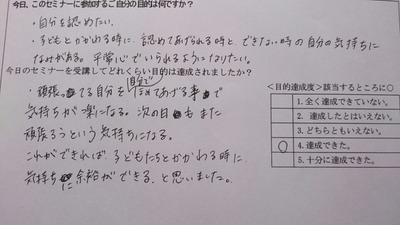 今日、このセミナーに参加するご自分の目的は何ですか?
・自分を認めたい。
・子どもとかかわる時に、認めてあげられる時と、できない時の自分の気持ちに
なみがある。平常心でいられるようになりたい。
今日のセミナーを受講してどれくらい目的は達成されましたか?
・頑張ってる自分を自分でほめてあげる事で
気持ちが楽になる。次の日もまた
頑張ろうという気持ちになる。
これができれば、子どもたちとかかわる時に
気持ちに余裕ができる、と思いました。
<目的達成度>該当するところに○
1.全く達成できていない。
2.達成したとはいえない。
3.どちらともいえない。
○ 4.達成できた。
5.十分に達成できた。